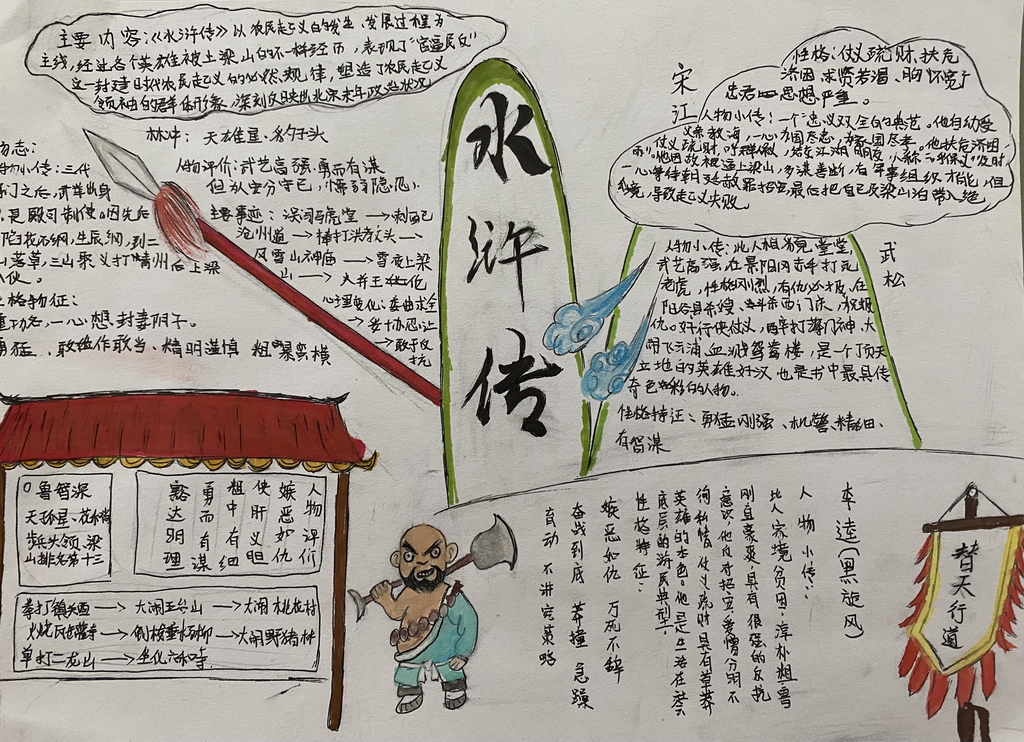 主要内容:《水浒传》以农民起义的发生、发展过程为
主线,经过各个英雄被上梁山的不一样经历,表现了"官逼民反"
这一封建时代农民起义的必然规律,塑造了农民起义
领袖的群体形象,深刻反映出北宋末年政治状况
水浒传
性格:仗义疏财、扶危
济困、求贤若渴、胸怀宽广
忠君思想严重。
宋江
人物小传:一个忠义双全的典范。他自幼爱
导致起义失败
林冲:天雄星·豹子头
人物评价:武艺高强、勇而有谋
但从安分守己,懦弱隐忍.
主要事迹:误闯白虎堂→刺配
沧州道→棒打洪教头→
风雪山神庙→雪夜上梁
山→火并王伦
心理变化:委曲求全
→敢于反
抗
物志:
物小传:三代
陷花石纲,生辰纲,到二
山落草,三山聚义打青州后上梁
格物征:
重功名,一心想封妻阴子。
勇猛、敢做作敢当、精明谨慎 粗暴蛮横
武松
人物小传:此人相貌堂堂,
武艺高强,在景阳冈赤手打死
老虎,性格刚烈,有仇必报,在
阳谷县杀嫂、斗杀西门庆,为报
仇。好行侠仗义,醉打蒋门神,大
闹飞云浦,血溅鸳鸯楼,是一个顶天
立地的英雄好汉,也是书中最具传
奇色彩的人物。
性格特征:勇猛刚强、机警精细、
有智谋
鲁智深
天孤星·花和尚
步兵头领、梁
山排名第十三
人物评们
嫉恶如仇
侠肝义胆
粗中有细
勇而有谋
豁达明理
拳打镇关西→大闹五台山→大闹桃花村
火烧瓦官寺→倒拔垂杨柳→大闹野猪林
单打二龙山→坐化六和寺
李逵(黑旋风)
人物小传:
此人家境贫困,淳朴粗鲁
刚直豪爽,具有很强的反抗
意识,他反对招安,爱憎分明不
徇私情,仗义疏财具有草莽
英雄的本色。他是生活在社会
底层的游民典型。
性格特征:
嫉恶如仇 万死不辞
奋战到底 莽撞急躁
盲动 不讲究策略
替天行道